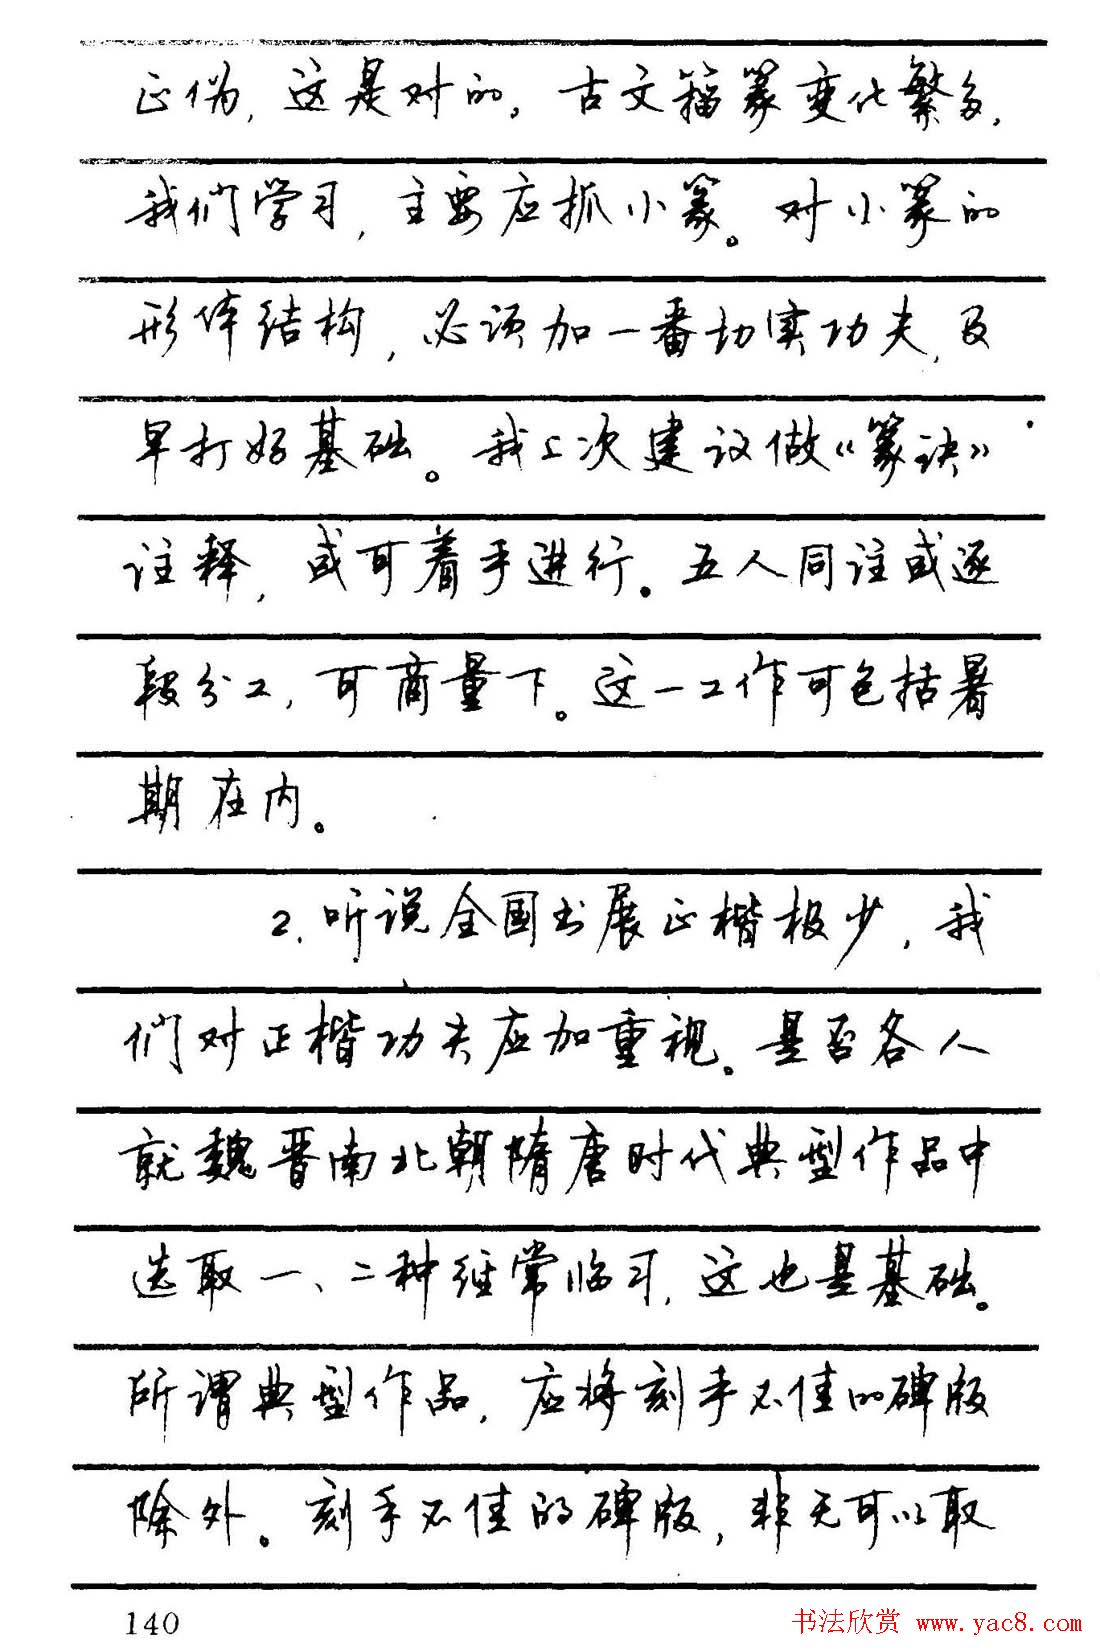 正伪，这是对的。古文籀篆变化繁多，
我们学习，主要应抓小篆。对小篆的
形体结构，必须加一番切实功夫，及
早打好基础。我上次建议做《篆诀》
注释，或可着手进行。五人同注或逐
段分工，可商量下。这一工作可包括暑
期在内。
2.听说全国书展正楷极少，我
们对正楷功夫应加重视。是否各人
就魏晋南北朝隋唐时代典型作品中
选取一、二种经常临习，这也是基础。
所谓典型作品，应将刻手不佳的碑版
除外。刻手不佳的碑版，非无可以取
140
书法欣赏 www.yac8.com